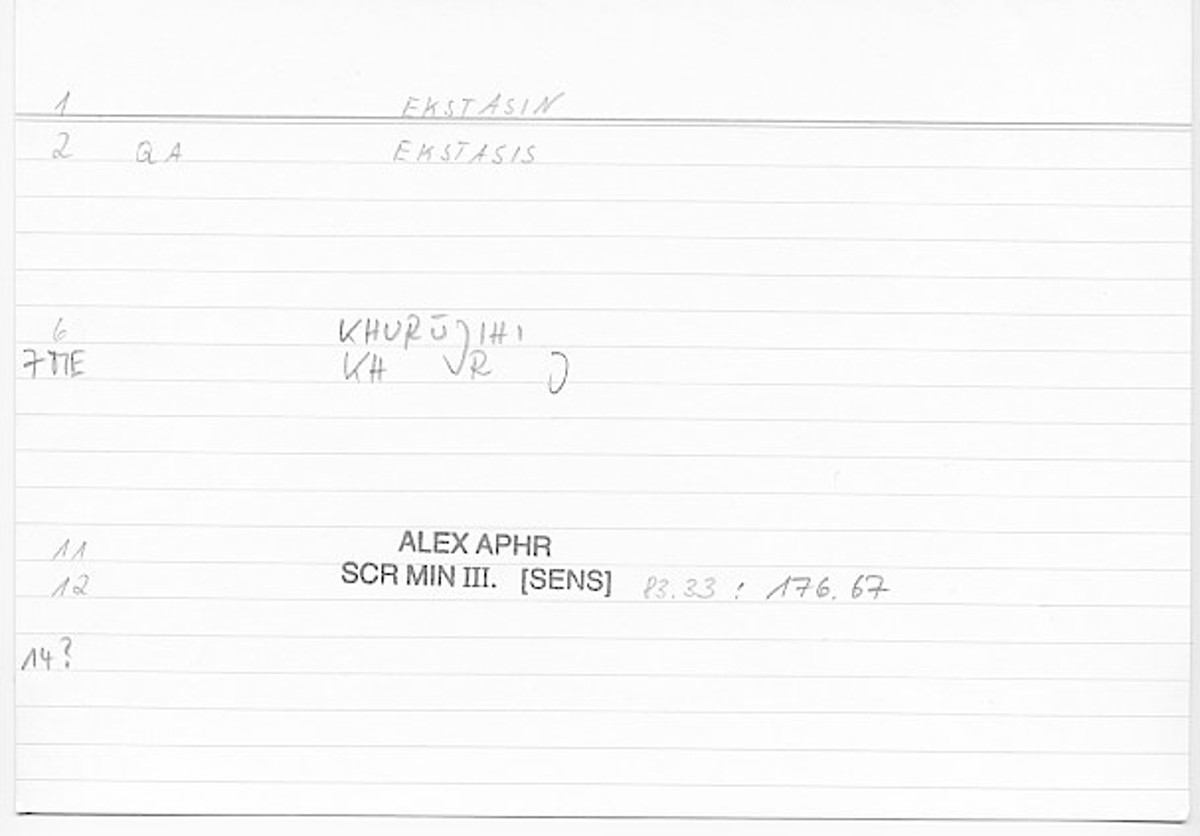 1 EKSTASIN
2 QA EKSTASIS
6 KHURŪJIHI
7 ME KH U R J
11 ALEX APHR
12 SCR MIN III. [SENS] 83.33 : 176.67
14?